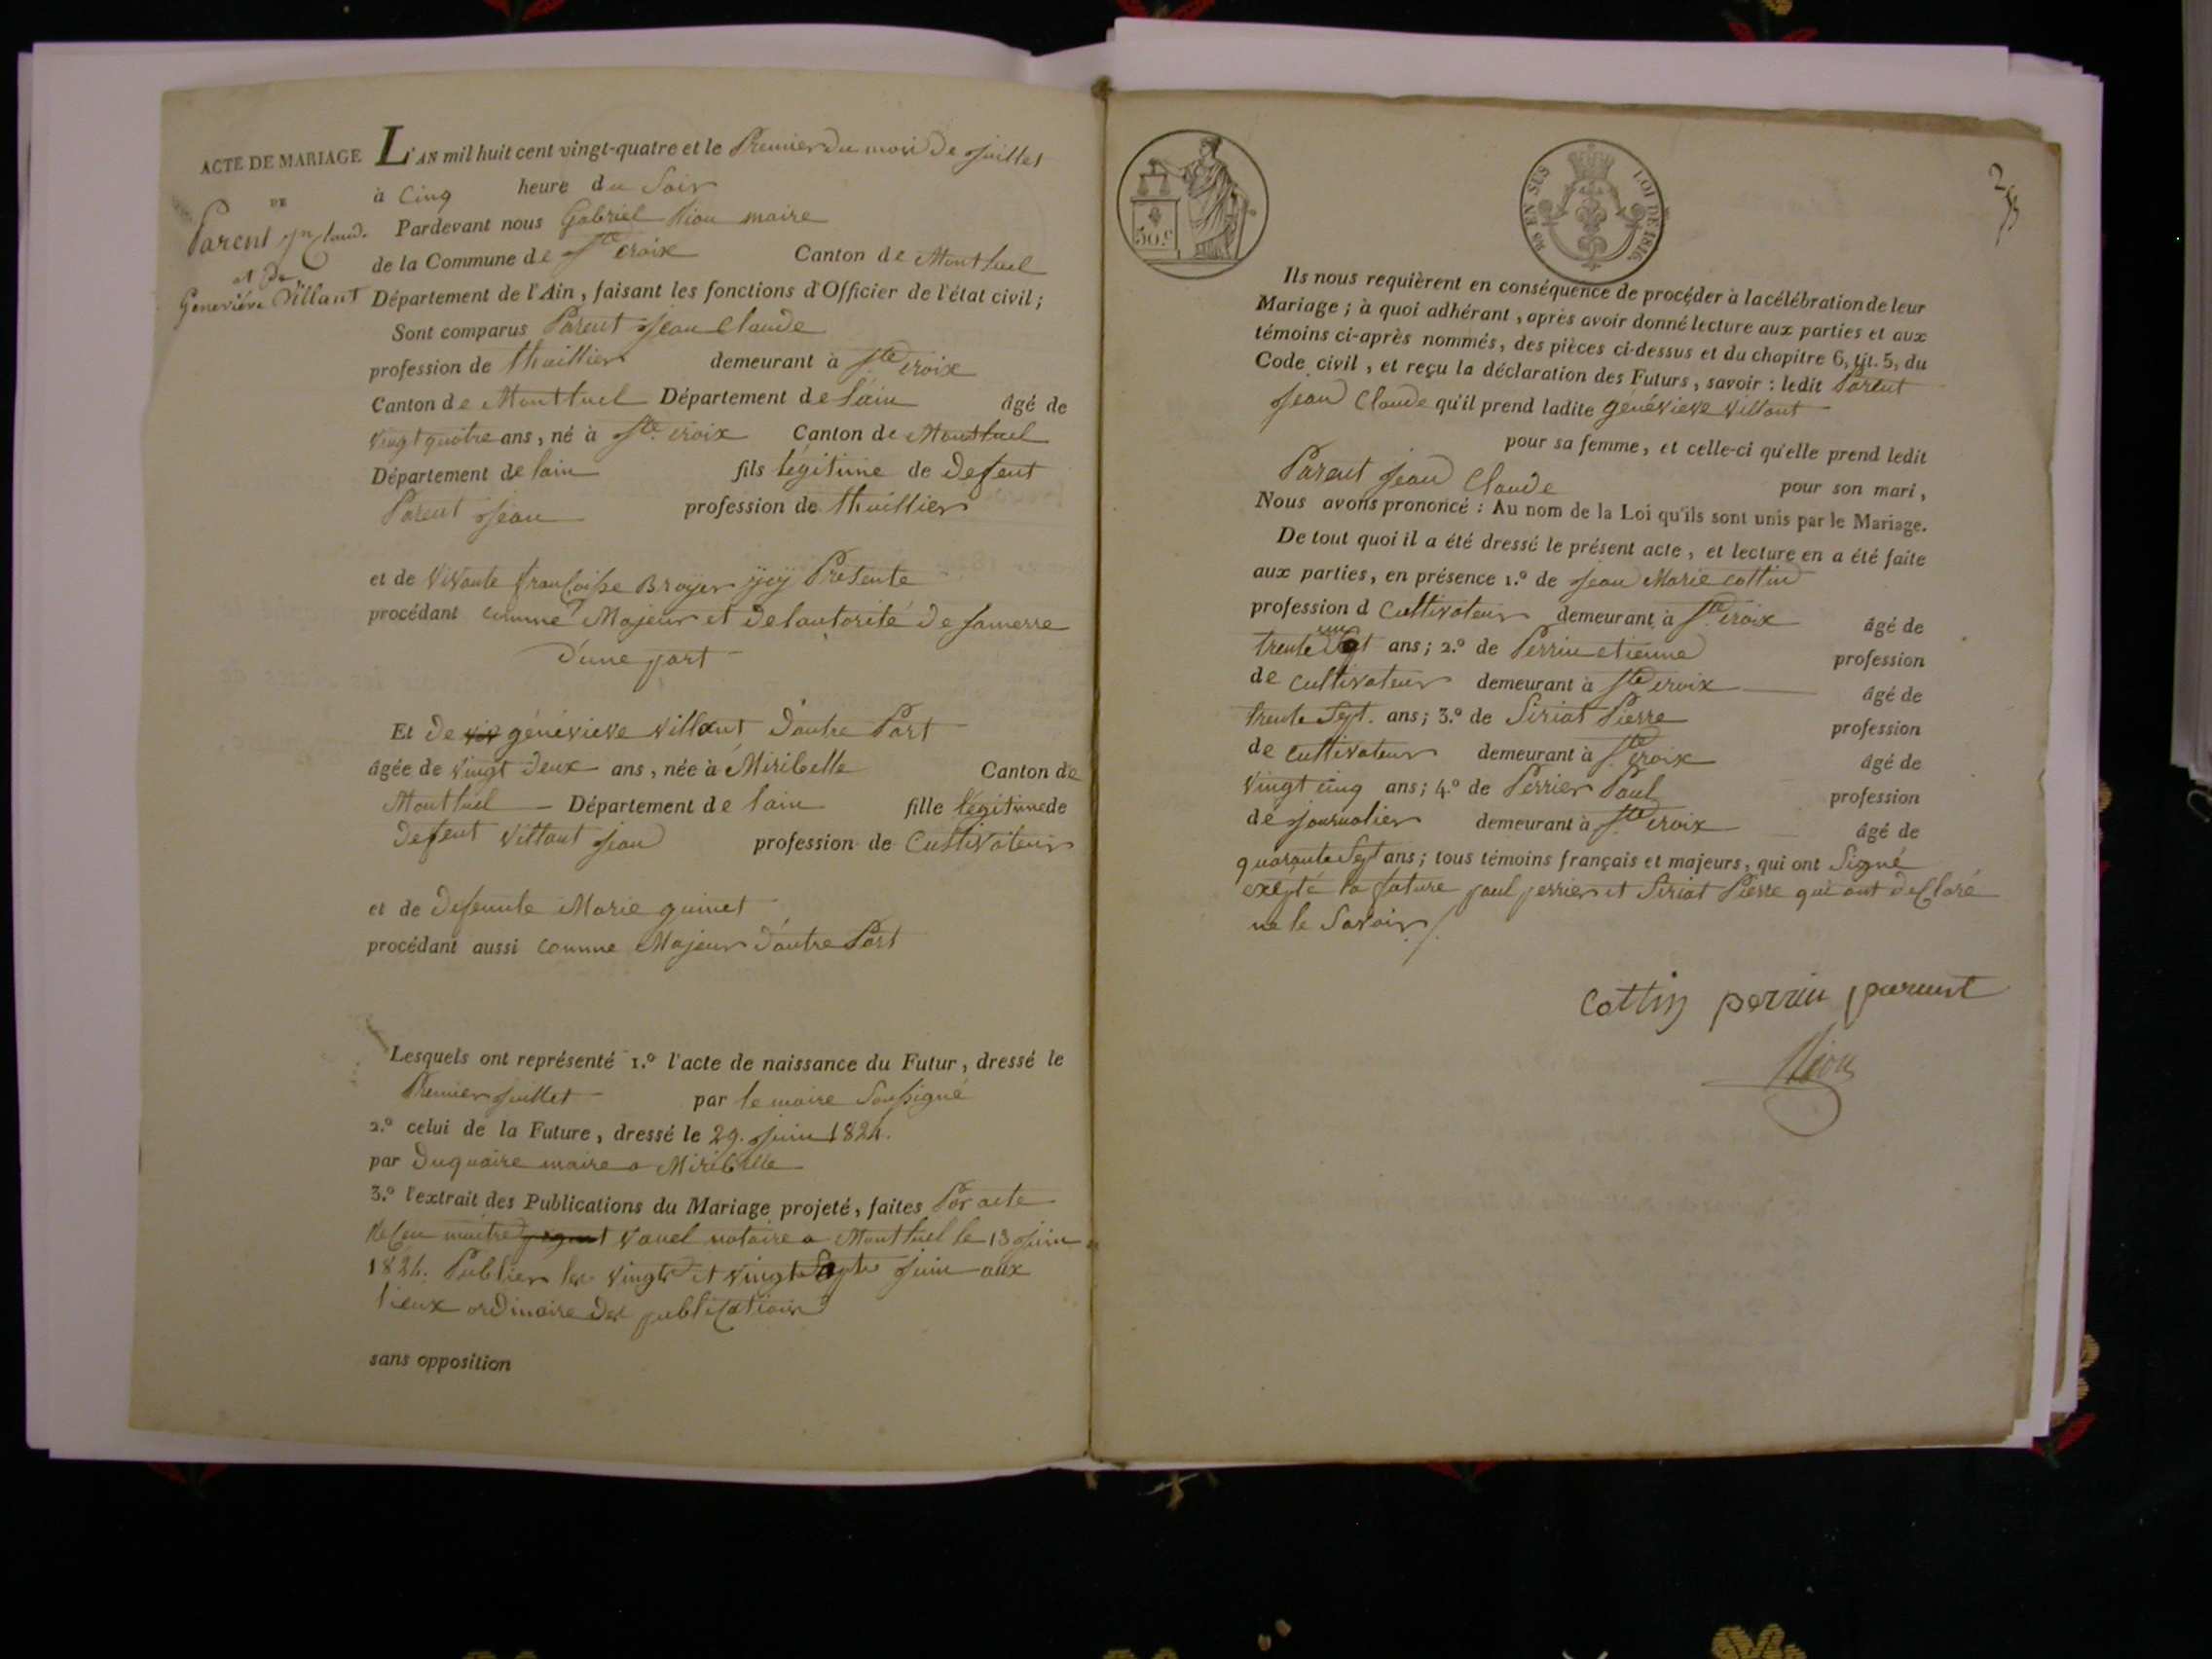 ACTE DE MARIAGE
DE
Parent Jn Claud.
et de
Geneviéve Villant
L'AN mil huit cent vingt-quatre et le Premier du mois de Juillet
à Cinq heure du Soir
Pardevant nous Gabriel Riou maire
de la Commune de Ste croix Canton de Montluel
Département de l'Ain, faisant les fonctions d'Officier de l'état civil;
Sont comparus Parent Jean Claude
profession de thuillier demeurant à Ste croix
Canton de Montluel Département de lain âgé de
vingt quatre ans, né à Ste croix Canton de Montluel
Département de lain fils légitime de defent
Parent Jean profession de thuillier
et de vivante francoise Broyer ycy Presente
procédant comme Majeur et de lautorité de samerre
d'une part
Et de viv génévieve villant d'autre Part
âgée de vingt deux ans, née à Miribelle Canton de
Montluel Département de lain fille légitime de
defent villant Jean profession de Cultivateur
et de defeunte Marie guinet
procédant aussi comme Majeur d'autre Part
Lesquels ont représenté 1.º l'acte de naissance du Futur, dressé le
Premier Juillet par le maire Soussigné
2.º celui de la Future, dressé le 29. Juin 1824.
par duquaire maire a Miribelle
3.º l'extrait des Publications du Mariage projeté, faites Par acte
Recu maitre vanel notaire a Montluel le 13 Juin
1824. Publier les vingt et vingt Septe Juin aux
lieux ordinaire des publications
sans opposition
50.c
EN SUS
LOI DE 1816
Ils nous requièrent en conséquence de procéder à la célébration de leur
Mariage; à quoi adhérant, après avoir donné lecture aux parties et aux
témoins ci-après nommés, des pièces ci-dessus et du chapitre 6, tit. 5, du
Code civil, et reçu la déclaration des Futurs, savoir: ledit Parent
Jean Claude qu'il prend ladite généviéve villant
pour sa femme, et celle-ci qu'elle prend ledit
Parent Jean Claude pour son mari,
Nous avons prononcé: Au nom de la Loi qu'ils sont unis par le Mariage.
De tout quoi il a été dressé le présent acte, et lecture en a été faite
aux parties, en présence 1.º de Jean Marie cottin
profession d Cultivateur demeurant à Ste croix âgé de
trente ans; 2.º de Perrin etienne profession
de cultivateur demeurant à Ste croix âgé de
trente Sept. ans; 3.º de Siriat Pierre profession
de cultivateur demeurant à Ste croix âgé de
vingt cinq ans; 4.º de Perrier Paul profession
de journalier demeurant à Ste croix âgé de
quarante Sept ans; tous témoins français et majeurs, qui ont Signé
exepté la future paul perrier et Siriat Pierre qui ont declaré
ne le Savoir
Cottin perrin parent
Riou